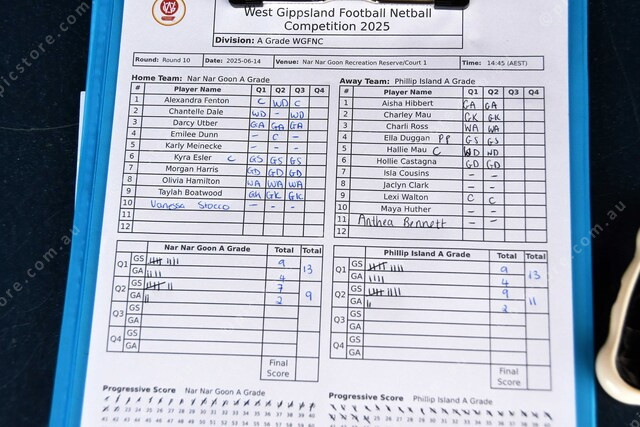 West Gippsland Football Netball
Competition 2025
Division: A Grade WGFNC
Round: Round 10 Date: 2025-06-14 Venue: Nar Nar Goon Recreation Reserve/Court 1 Time: 14:45 (AEST)
Home Team: Nar Nar Goon A Grade
# Player Name Q1 Q2 Q3 Q4
1 Alexandra Fenton C WD C
2 Chantelle Dale WD - WD
3 Darcy Utber GA GA GA
4 Emilee Dunn - C -
5 Karly Meinecke - - -
6 Kyra Esler C GS GS GS
7 Morgan Harris GD GD GD
8 Olivia Hamilton WA WA WA
9 Taylah Boatwood GK GK GK
10 Vanessa Stocco - - -
11
12
Away Team: Phillip Island A Grade
# Player Name Q1 Q2 Q3 Q4
1 Aisha Hibbert GA GA
2 Charley Mau GK GK
3 Charli Ross WA WA
4 Ella Duggan PP GS GS
5 Hallie Mau C WD WD
6 Hollie Castagna GD GD
7 Isla Cousins - -
8 Jaclyn Clark - -
9 Lexi Walton C C
10 Maya Huther - -
11 Anthea Bennett - -
12
Nar Nar Goon A Grade Total Total
Q1 GS 9 13
GA 4
Q2 GS 7 9
GA 2
Q3 GS
GA
Q4 GS
GA
Final
Score
Phillip Island A Grade Total Total
Q1 GS 9 13
GA 4
Q2 GS 9 11
GA 2
Q3 GS
GA
Q4 GS
GA
Final
Score
Progressive Score Nar Nar Goon A Grade
Progressive Score Phillip Island A Grade